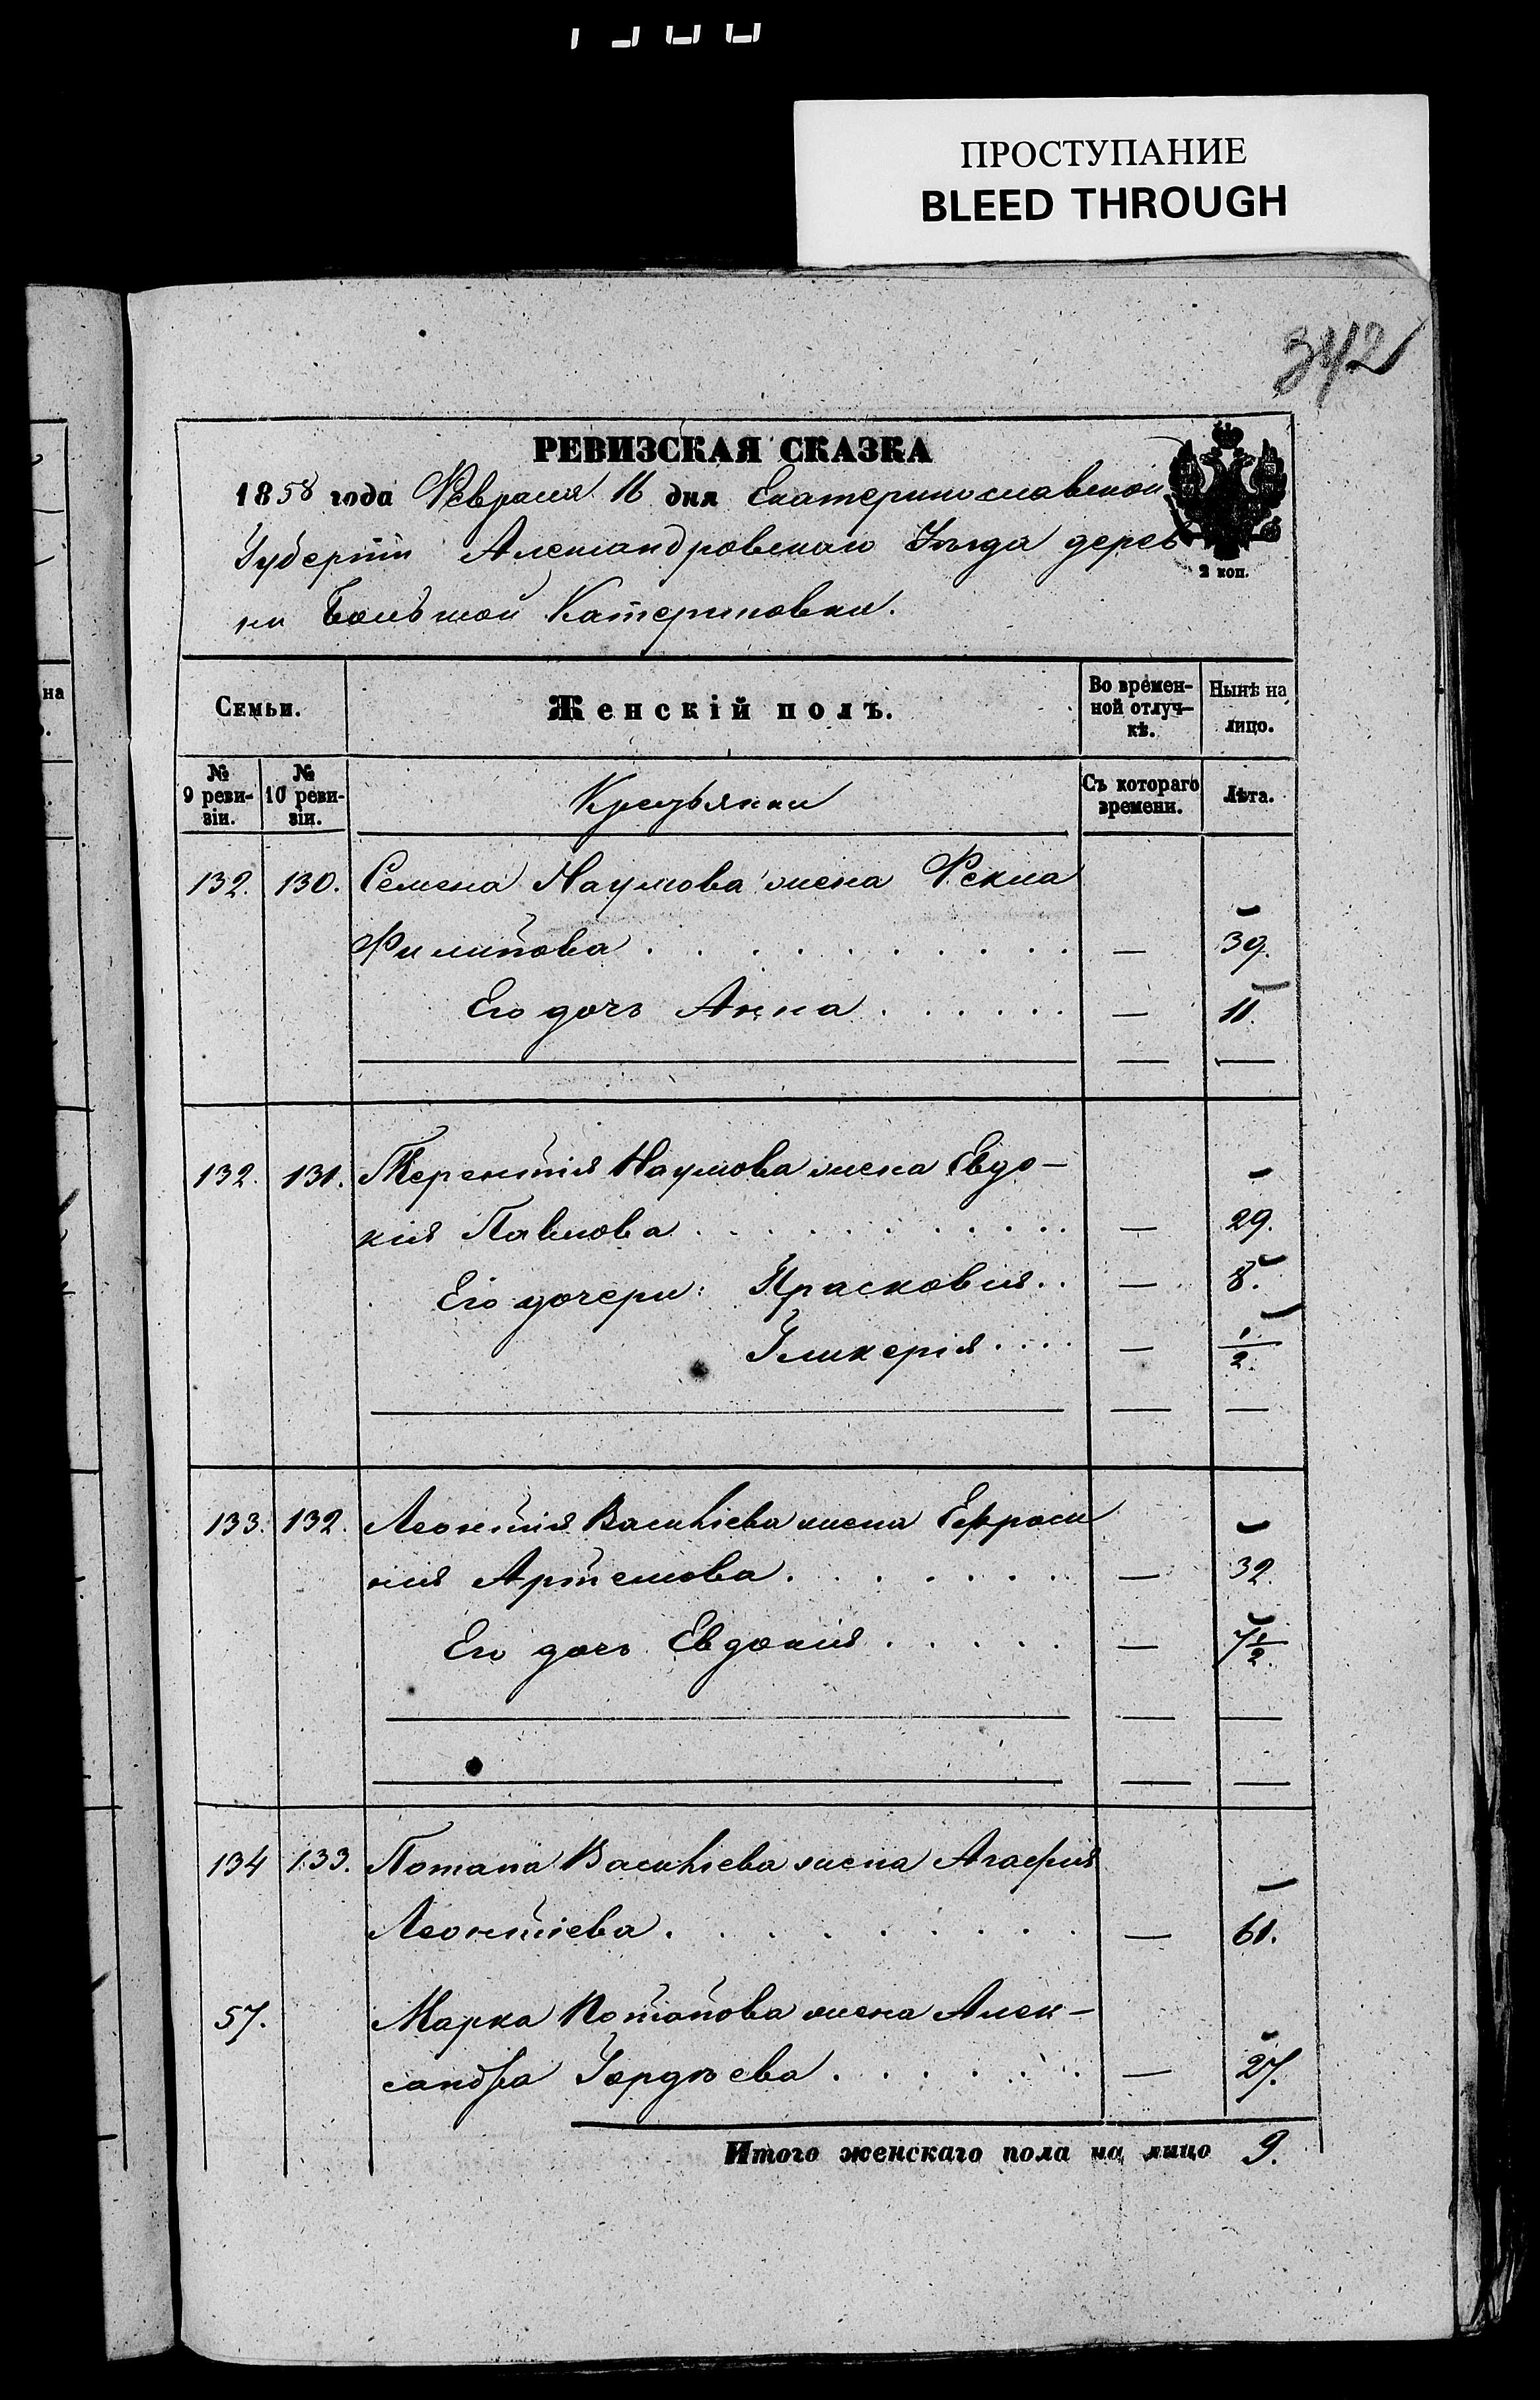 ПРОСТУПАНИЕ
BLEED THROUGH
342
РЕВИЗСКАЯ СКАЗКА
1858 года Февраля 16 дня Екатеринославской
Губерніи Александровскаго Уѣзда дерев
ни Большой Катериновки.
2 коп.
Семьи.
Женскій полъ.
Во времен-
ной отлуч-
кѣ.
Нынѣ на
лицо.
№
9 реви-
зіи.
№
10 реви-
зіи.
Крестьянки
Съ котораго
времени.
Лѣта.
132. 130. Семена Наумова жена Фекла
Филипова . . . . . . . . . — 39.
Его дочь Анна . . . . . . — 11.
132. 131. Терентія Наумова жена Евдо-
кія Павлова . . . . . . . . — 29.
Его дочери: Прасковія . . — 8.
Гликерія . . . . — 1/2.
133. 132. Леонтія Васильева жена Ефроси
нія Артемова . . . . . . . — 32.
Его дочь Евдокія . . . . . — 7 1/2.
134 133. Потапа Васильева жена Агафія
Леонтіева . . . . . . . . — 61.
57. Марка Потапова жена Алек-
сандра Гордѣева . . . . . . — 27.
Итого женскаго пола на лицо 9.
на